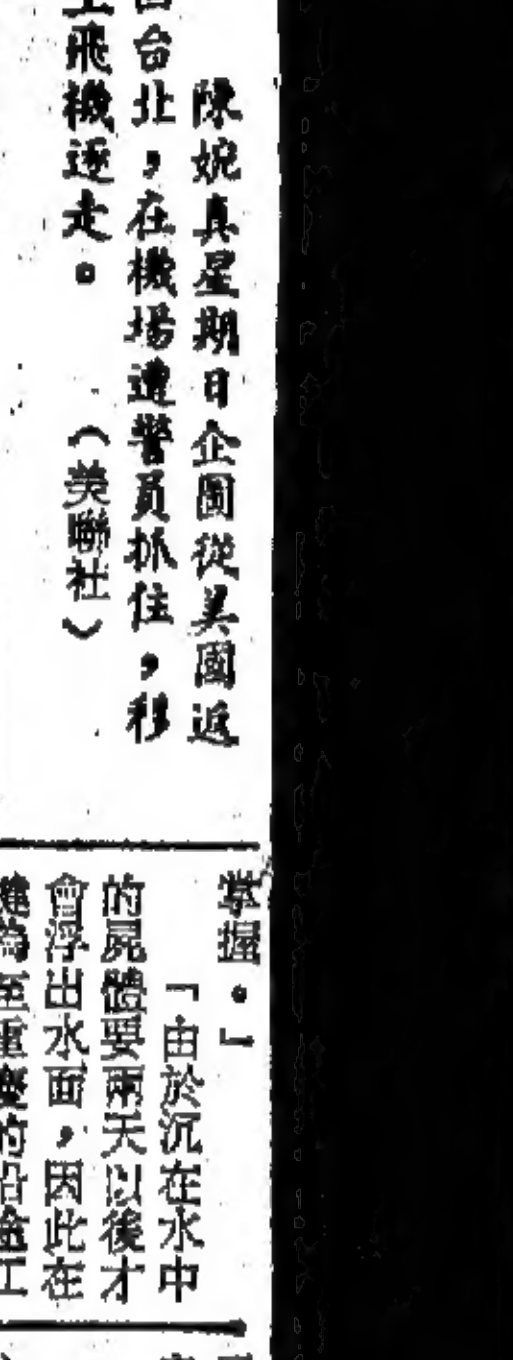 陳婉真星期日企圖從美國返
回台北，在機場遭警員抓住，移
上飛機逐走。　（美聯社）
掌握。」
「由於沉在水中
的屍體要兩天以後才
會浮出水面，因此在
至重慶的沿途工